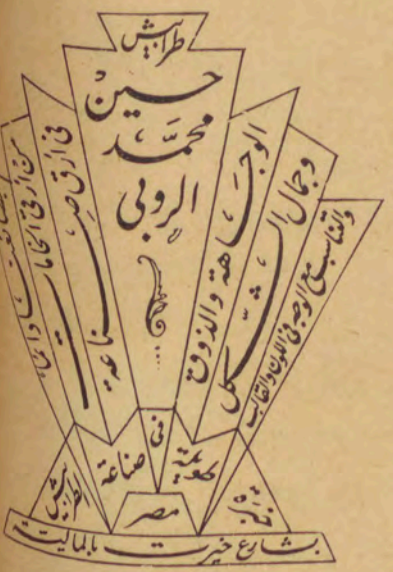 طرابيش
حسين
محمد
الروبي
الوجاهة والذوق
وجمال الشكل
والتناسب مع الوجه في اللون والقالب
في أرق صناعة
من أرقى الخامات
خبرة
طويلة
في
صناعة
الطرابيش
مصر
بشارع خيرت بالمالية